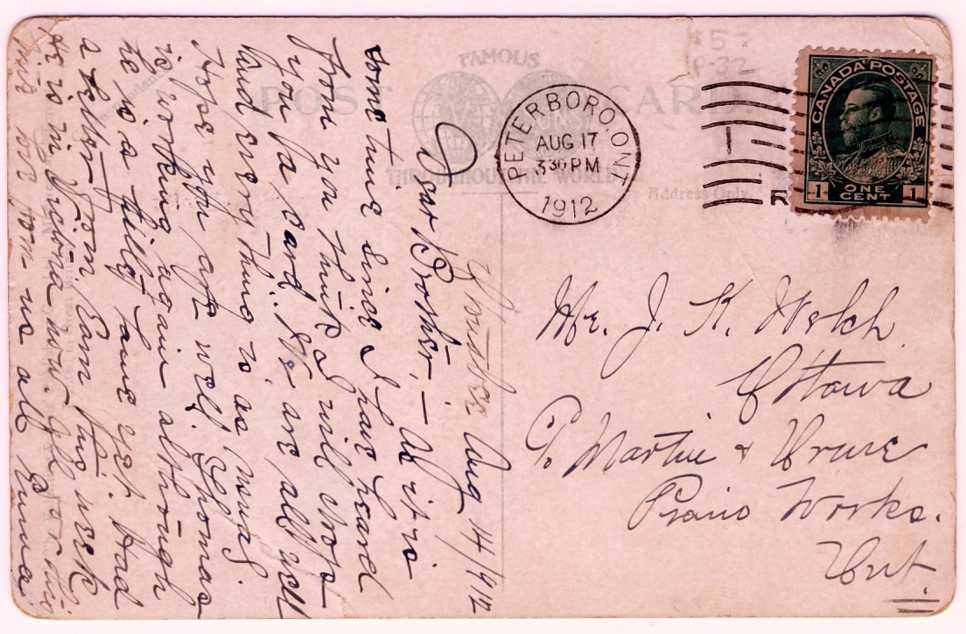 FAMOUS
POST CARD
THROUGHOUT THE WORLD
Address Only
PETERBORO. ONT
AUG 17
3 30 PM
1912
CANADA POSTAGE
1 ONE CENT 1
Aug 14/1912
Dear Brother, – As it is
some time since I have heard
from you think I will drop
you a card. We are all well
and every thing is as usual.
Hope you are well. Thomas
is working again although
he is a little lame yet. Had
a letter from this week
He is in now.
with love from us all Emma
Mr. J. K. Welch.
Ottawa
C/o Martin &
Piano Works.
Ont.